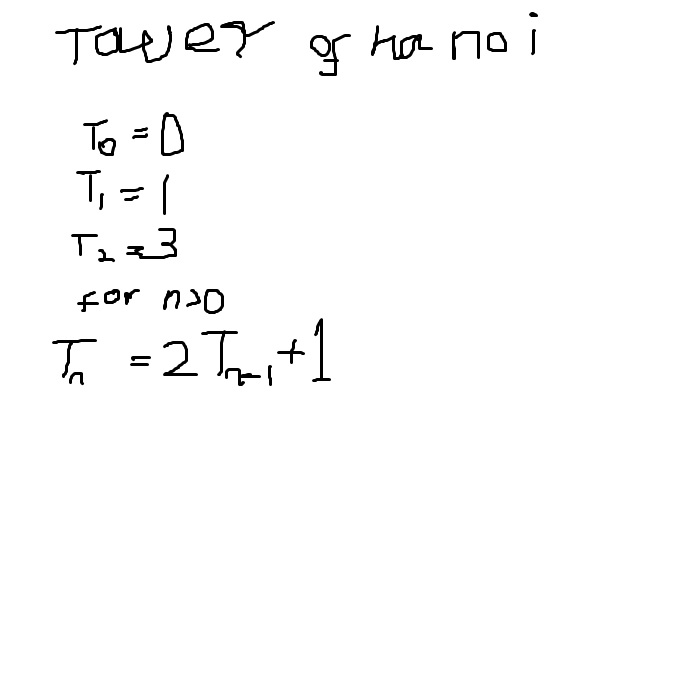 Tower of hanoi
T₀ = 0
T₁ = 1
T₂ = 3
for n>0
Tₙ = 2Tₙ₋₁+1